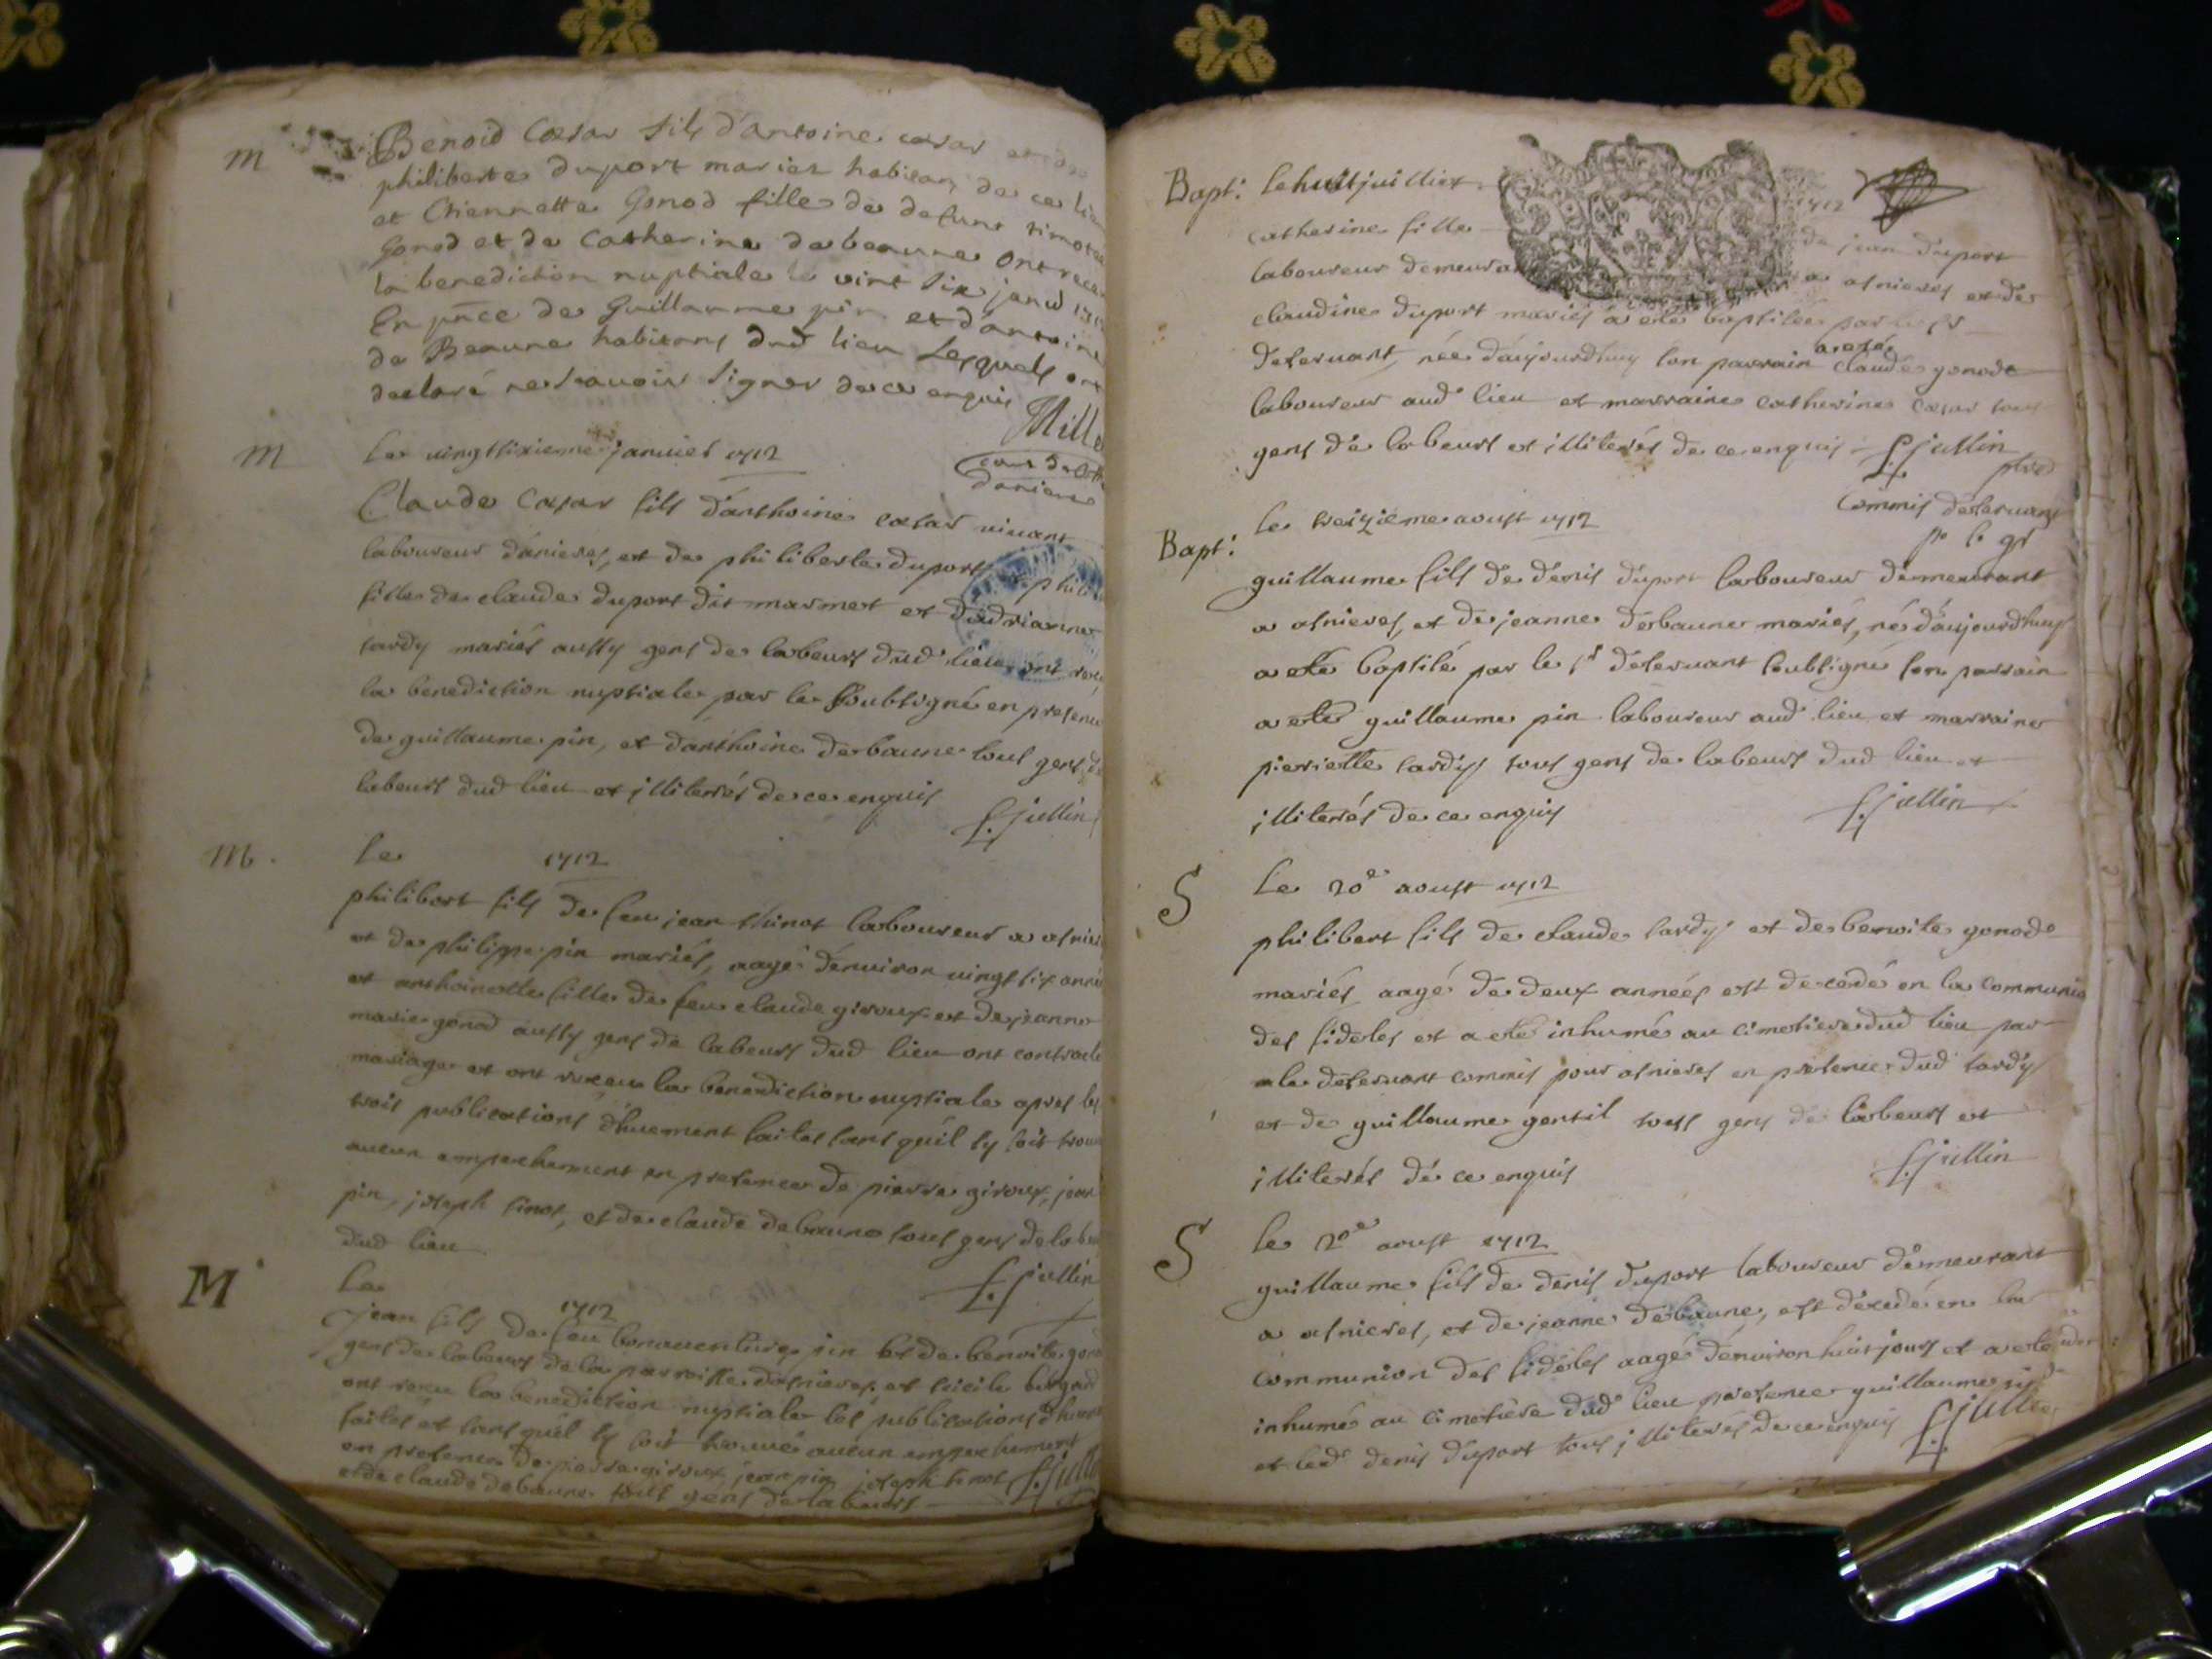 m
Benoid Cæsar fils d'antoine cæsar et de
philiberte duport mariez habitans de ce lieu
et Etiennette Gonod fille de defunt timotée
Gonod et de Catherine de beaune ont receu
la benediction nuptiale le vint six janv 1712
En pnce de Guillaume pin et d'antoine
de Beaune habitans dud lieu Lesquels ont
declaré ne scavoir signer de ce enquis
m
Le vingt sixieme janvier 1712
Claude Cæsar fils d'anthoine cæsar vivant
laboureur d'anieres, et de philiberte duport
fille de claude duport dit marmet et d'adrianne
tardy mariés aussy gens de labeurs dud lieu ont receu
la benediction nuptiale par le soubsigné en presence
de guillaume pin, et d'anthoine debaune tous gens de
labeurs dud lieu et illiterés de ce enquis
f. jullin
m.
Le 1712
philibert fils de feu jean thinot laboureur a asnieres
et de philippe pin mariés, aagé d'environ vingt six années
et anthoinette fille de feu claude giroux et de jeanne
marie gonod aussy gens de labeurs dud lieu ont contracté
mariage et ont receu la benediction nuptiale apres les
trois publications d'huement faites sans qu'il sy soit trouvé
aucun empechement en presence de pierre giroux, jean
pin, joseph tinot, et de claude debaune tous gens de labeurs
dud lieu
f. jullin
M
Le 1712
jean fils de feu bonaventure pin et de benoite gonod
gens de labeurs de la parroisse d'asnieres et
ont receu la benediction nuptiale les publications d'huement
faites et sans qu'il sy soit trouvé aucun empechement
en presence de pierre giroux jean pin joseph tinot
et de claude debaune tous gens de labeurs
f. jullin
Bapt: le huit juilliet 1712
catherine fille de jean duport
laboureur demeurant a asnieres et de
claudine duport mariés a eté baptisée par le sr
deservant, née d'aujourdhuy son parrain a eté claude gonode
laboureur aud lieu et marraine catherine cæsar tous
gens de labeurs et illiterés de ce enquis f. jullin
commis deservant
Bapt:
le treizieme aoust 1712
guillaume fils de denis duport laboureur demeurant
a asnieres, et de jeanne debaune mariés, né d'aujourdhuy
a eté baptisé par le sr deservant soubsigné son parrain
a eté guillaume pin laboureur aud lieu et marraine
pierrette tardy tous gens de labeurs dud lieu et
illiterés de ce enquis f. jullin
S
Le 20e aoust 1712
philibert fils de claude tardy et de benoite gonode
mariés aagé de deux années est decedé en la communion
des fideles et a eté inhumé au cimetiere dud lieu par
le deservant commis pour asnieres en presence dud tardy
et de guillaume gentil tous gens de labeurs et
illiterés de ce enquis f. jullin
S
le 20e aoust 1712
guillaume fils de denis duport laboureur demeurant
a asnieres, et de jeanne debaune, est decedé en la
communion des fideles aagé d'environ huit jours et a eté
inhumé au cimetiere dud lieu presence guillaume pin
et led denis duport tous illiterés de ce enquis f. jullin